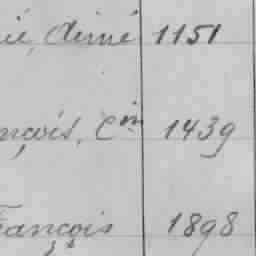 ie, Aimé 1151
nçois, C^in 1439
François 1898